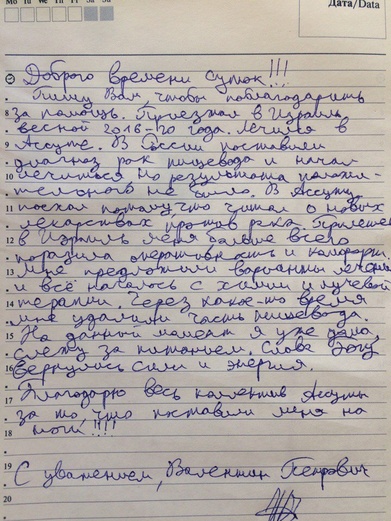 Mo Tu We Th Fr Sa Su
Дата/Data
Доброго времени суток!!!
Пишу Вам, чтобы поблагодарить
8 за помощь. Приезжал в Израиль
весной 2016-го года. Лечился в
9 Ассуте. В России поставили
диагноз рак пищевода и начал
10 лечиться но результата положи-
тельного не было. В Ассуту
11 поехал потому,что читал о новых
лекарствах против рака. Прилетел
12 в Израиль меня больше всего
поразила оперативность и комфорт.
13 Мне предложили варианты лечения
и всё началось с химии и лучевой
14 терапии. Через какое-то время
мне удалили часть пищевода.
15 На данный момент я уже дома,
слежу за питанием. Слава Богу
16 вернулись силы и энергия.
17 Благодарю весь коллектив Ассуты
за то, что поставили меня на
18 ноги!!!!
19
С уважением, Валентин Петрович
20